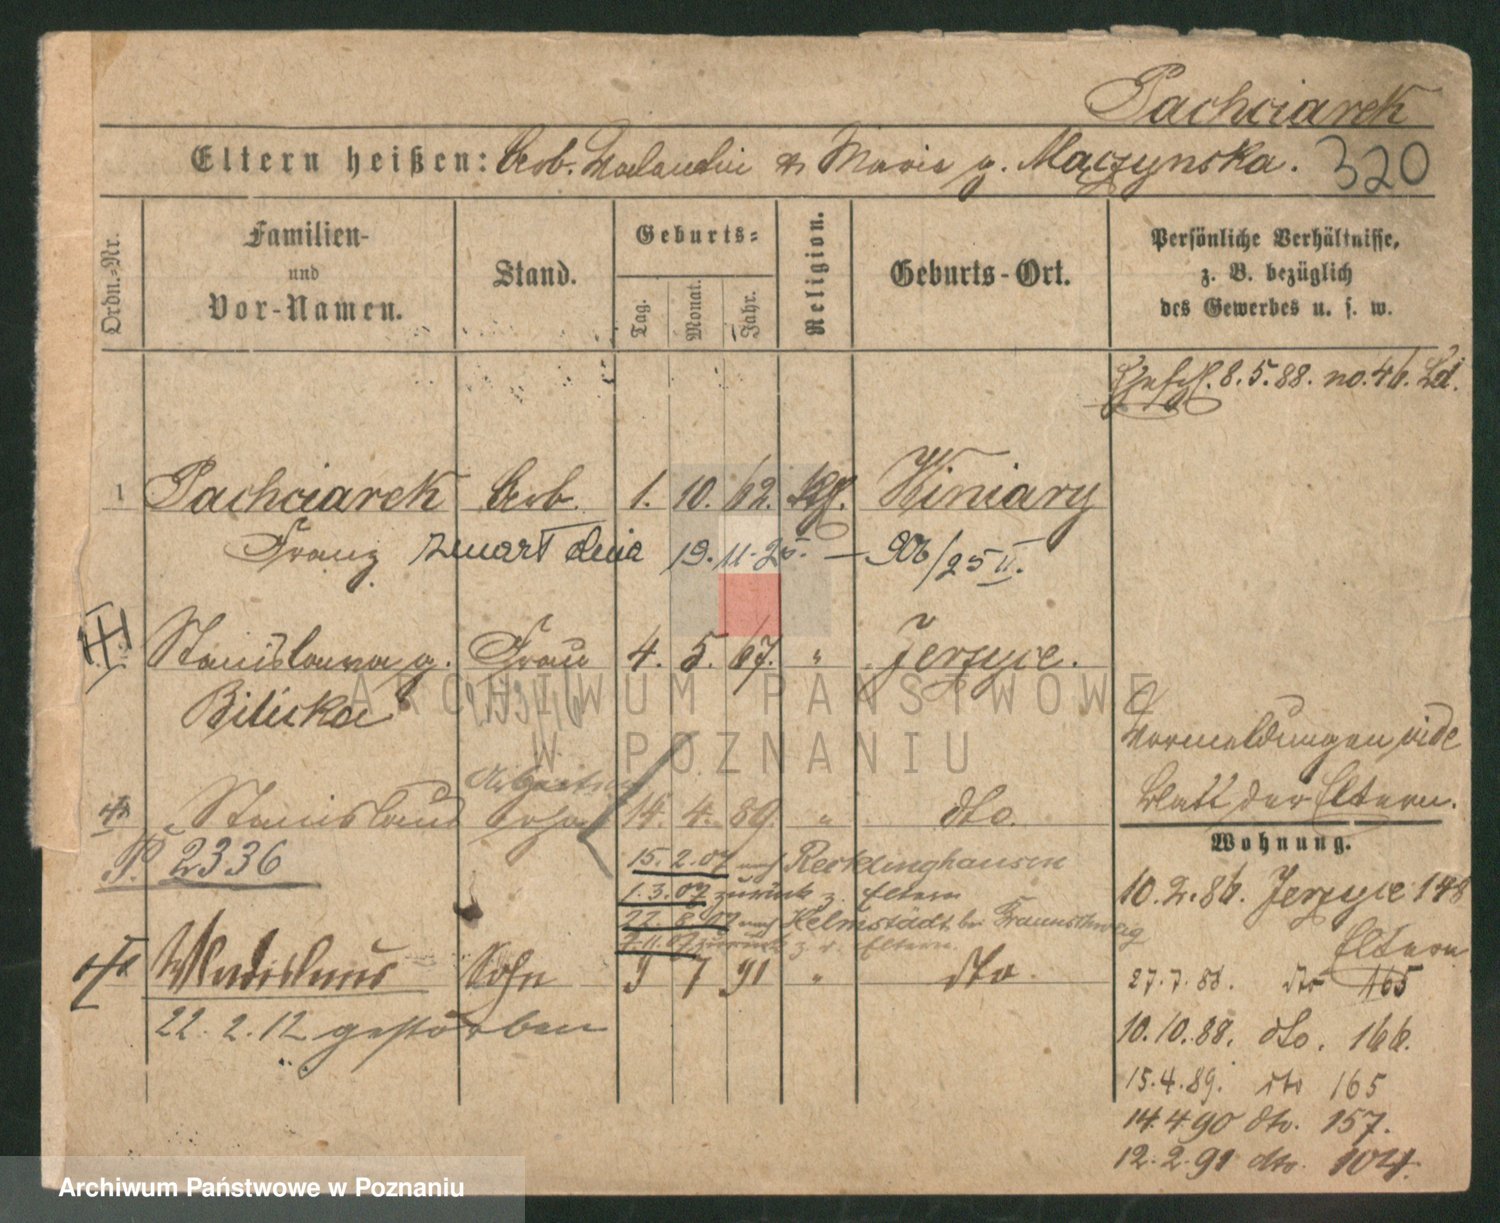 Pachciarek
Eltern heißen: Arb. Valentin u Marie g. Mączynska. 320
Ordn.-Nr.
Familien-
und
Vor-Namen.
Stand.
Geburts-
Tag.
Monat.
Jahr.
Religion.
Geburts-Ort.
Persönliche Verhältnisse,
z. B. bezüglich
des Gewerbes u. s. w.
8.5.88. no. 46.
1 Pachciarek Arb. 1. 10. 62. kth. Winiary
Franz zmarł dnia 19. 11. 25. — 906/25 II.
Stanislawa g. Frau 4. 5. 67. " Jerzyce.
Bilicka
Vormeldungen vide
Blatt der Eltern.
Stanislaus Sohn 14. 4. 89. " dto.
P. 2336
15. 2. 07 nach Recklinghausen
1. 3. 07 zurück z. Eltern
22. 8. 07 nach Helmstadt bei Braunschweig
7. 11. 07 zurück z. d. Eltern.
Wladislaus Sohn 9 7 91 " dto.
22. 2. 12 gestorben
Wohnung.
10. 2. 86. Jerzyce 148
Eltern
27. 7. 88. dto 165
10. 10. 88. dto. 166.
15. 4. 89. dto 165
14. 4 90 dto. 157.
12. 2. 91 dto. 104.
ARCHIWUM PAŃSTWOWE
W POZNANIU
Archiwum Państwowe w Poznaniu